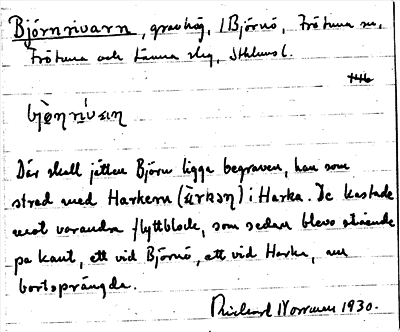 Björnrivarn, gravhög, i Björnö, Frötuna sn,
Frötuna och Länna slg, Sthlms l.
146
Där skall jätten Björn ligga begraven, han som
stred med Harkern (ὲrkən) i Harka. De kastade
mot varandra flyttblock, som sedan blevo stående
på kant, ett vid Björnö, ett vid Harka, nu
bortsprängda.
Rickard 1930.